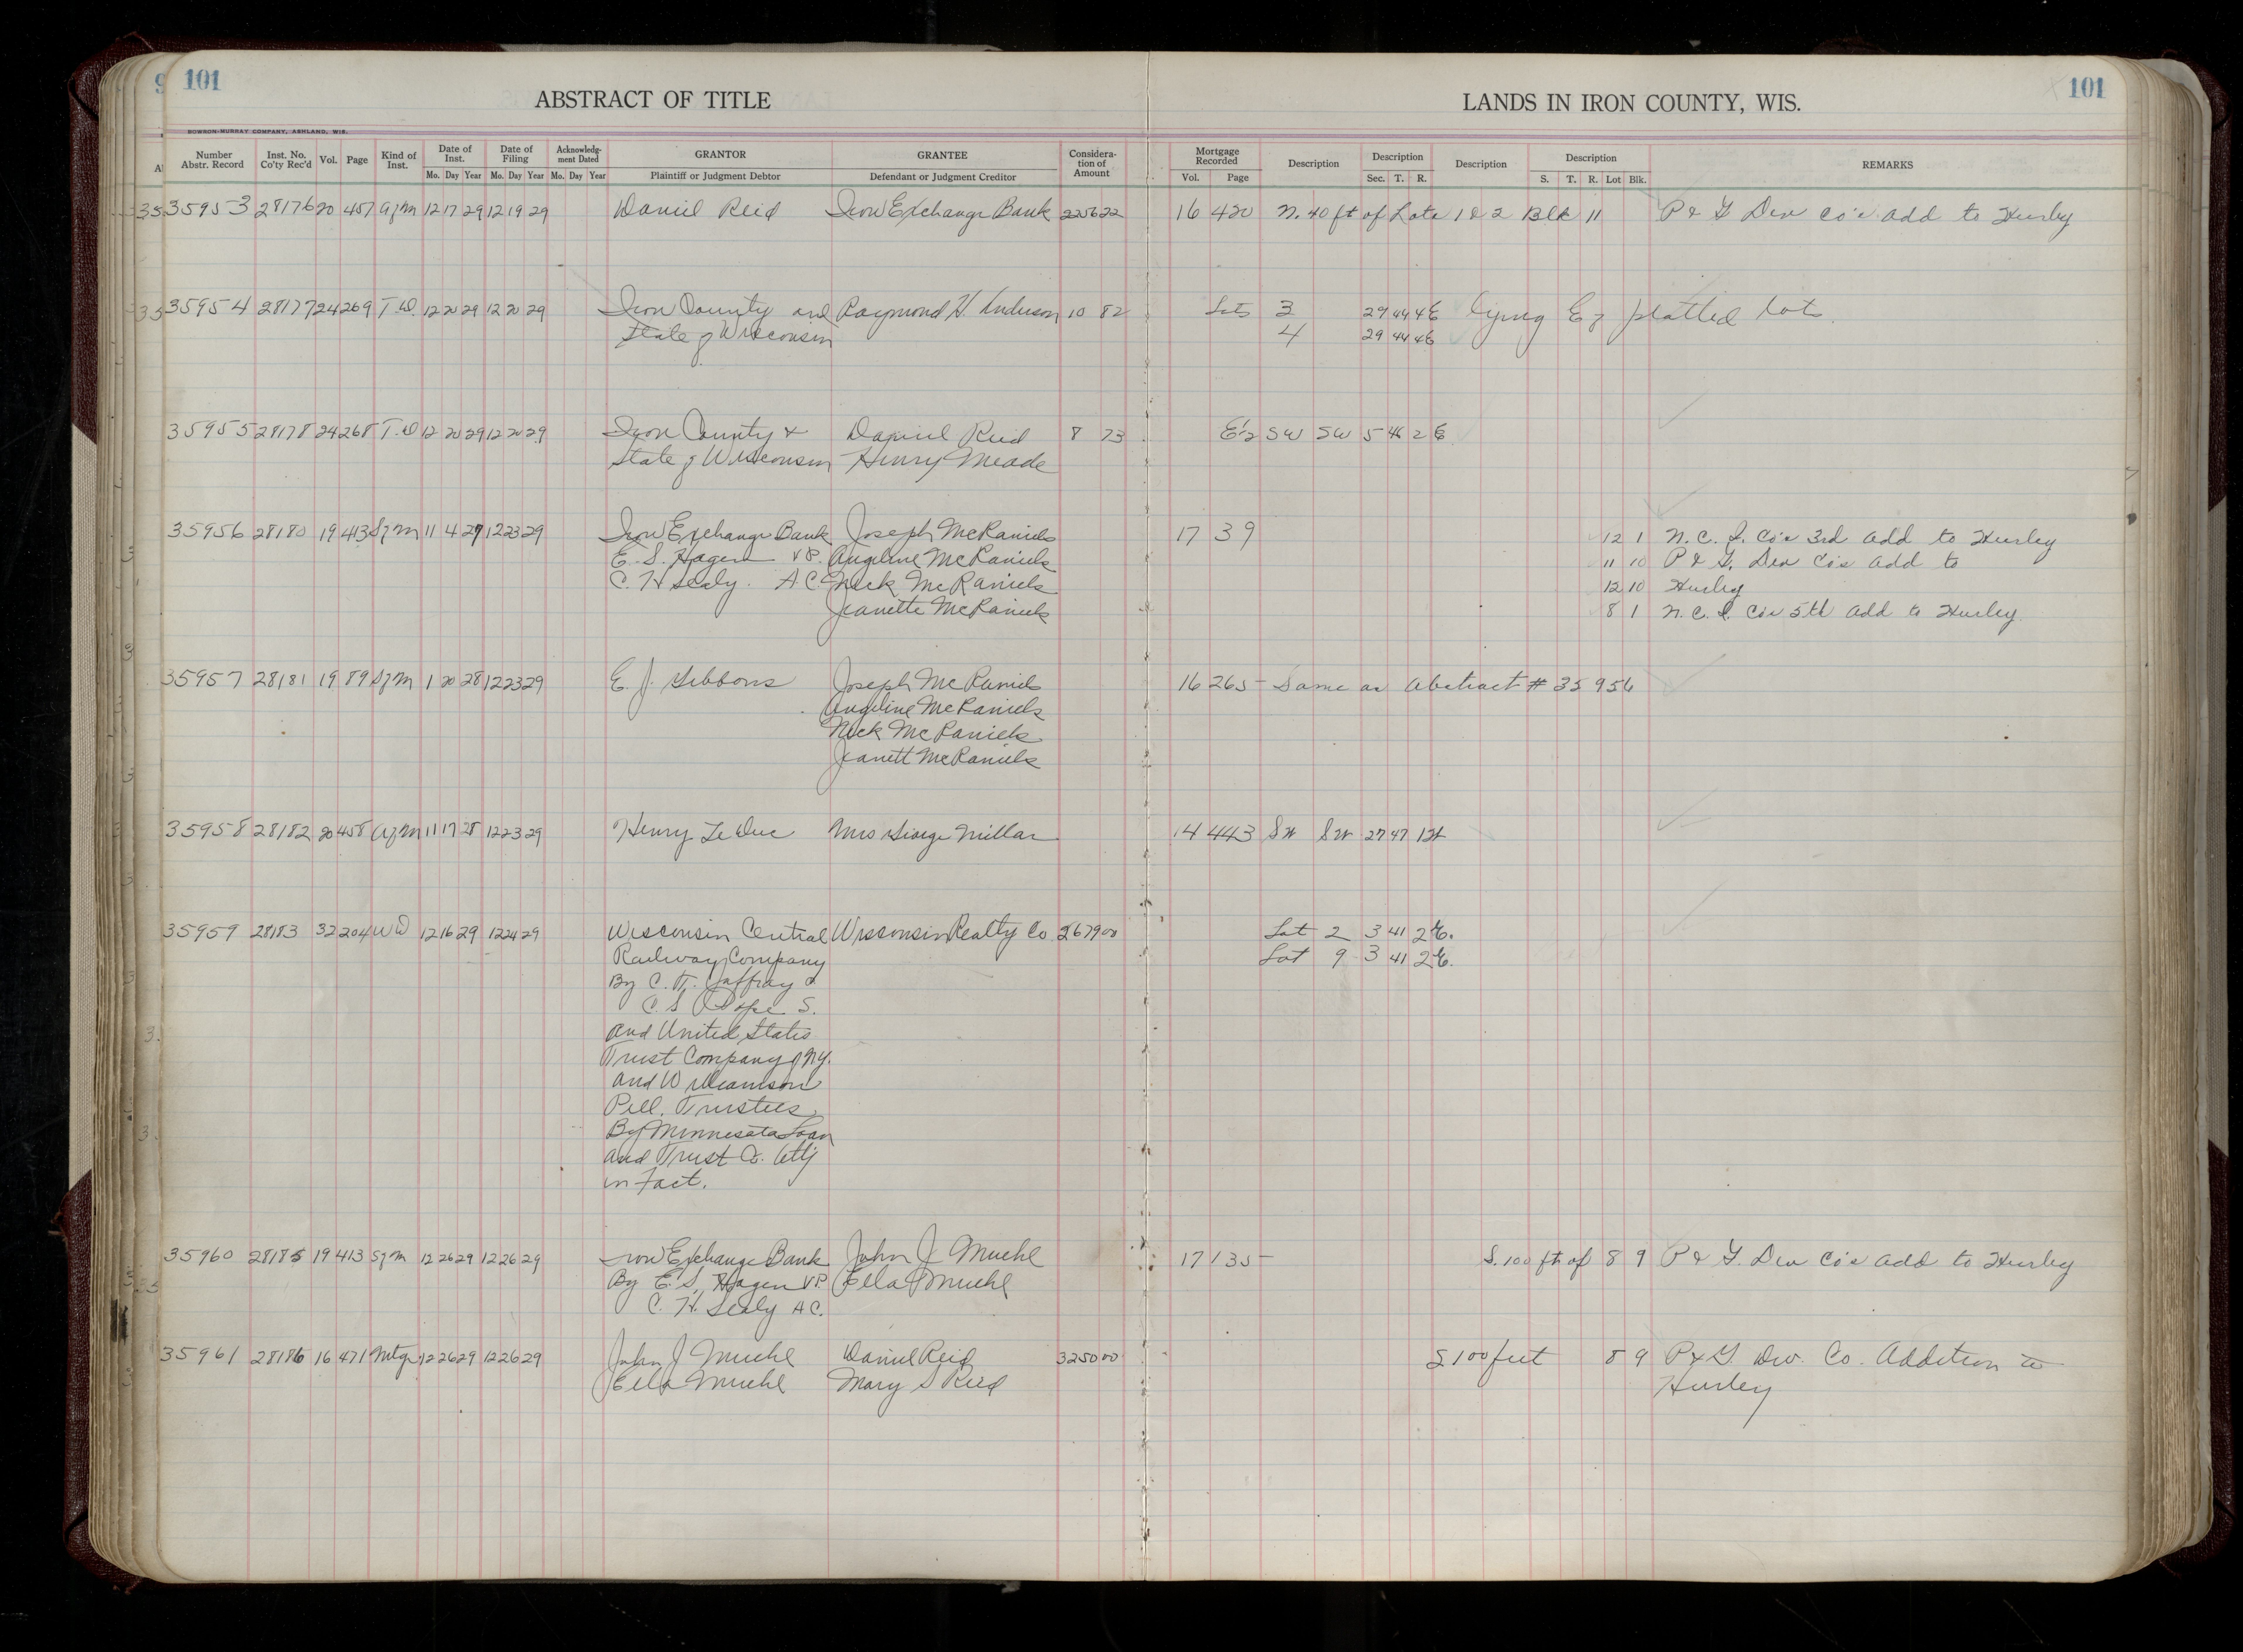 101
ABSTRACT OF TITLE
LANDS IN IRON COUNTY, WIS.
101
BOWRON-MURRAY COMPANY, ASHLAND, WIS.
Number Abstr. Record Inst. No. Co'ty Rec'd Vol. Page Kind of Inst. Date of Inst. Mo. Day Year Date of Filing Mo. Day Year Acknowledg-ment Dated Mo. Day Year GRANTOR Plaintiff or Judgment Debtor GRANTEE Defendant or Judgment Creditor Considera-tion of Amount Mortgage Recorded Vol. Page Description Description Sec. T. R. Description Description S. T. R. Lot Blk. REMARKS
35953 28176 20 457 Agm 12 17 29 12 19 29 Daniel Reid Iron Exchange Bank 2256 22 16 420 N. 40 ft of Lots 1 & 2 Blk 11 P & G Dev Co's add to Hurley
35954 28177 24 269 T.D. 12 20 29 12 20 29 Iron County and Raymond H. Anderson 10 82 Lots 3 29 44 4E lying E of platted lots.
State of Wisconsin 4 29 44 4E
35955 28178 24 268 T.D 12 20 29 12 20 29 Iron County & Daniel Reid 8 73 E½ SW SW 5 46 2 E
State of Wisconsin Henry Meade
35956 28180 19 413 Sgm 11 4 29 12 23 29 Iron Exchange Bank Joseph McRaniels 17 39 12 1 N. C. I. Co's 3rd add to Hurley
E. S. Hagen V.P. Angeline McRaniels 11 10 P & G. Dev Co's add to
C. H Sealy. A C Nick McRaniels 12 10 Hurley
Jeanette McRaniels 8 1 N. C. I. Co's 5th add to Hurley
35957 28181 19 89 Sgm 1 20 28 12 23 29 E. J. Gibbons Joseph McRaniels 16 265 Same as Abstract # 35956
Angeline McRaniels
Nick McRaniels
Jeanett McRaniels
35958 28182 20 458 Agm 11 17 28 12 23 29 Henry LeDuc Mrs George Millar 14 443 SW SW 27 47 1W
35959 28183 32 204 WD 12 16 29 12 24 29 Wisconsin Central Wisconsin Realty Co 2679 00 Lot 2 3 41 2E.
Railway Company Lot 9 3 41 2E.
By C. T. Jaffray &
C. S Pope S.
and United States
Trust Company of N.Y.
and Williamson
Pell. Trustees
By Minnesota Loan
and Trust Co. Atty
in Fact.
35960 28185 19 413 Sgm 12 26 29 12 26 29 Iron Exchange Bank John J Muehl 17 135 S. 100 ft of 8 9 P & G. Dev Co's add to Hurley
By E. S. Hagen V.P Ella Muehl
C. H. Sealy A C.
35961 28186 16 471 Mtge 12 26 29 12 26 29 John J Muehl Daniel Reid 3250 00 S 100 feet 8 9 P & G. Dev. Co. Addition to
Ella Muehl Mary S Reid Hurley